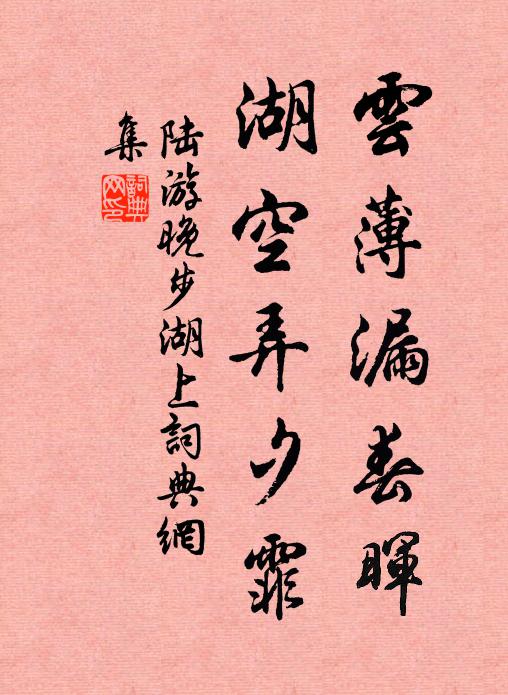 雲薄漏春暉
湖空弄夕霏
陆游晚步湖上詞典網
集
詞典网印